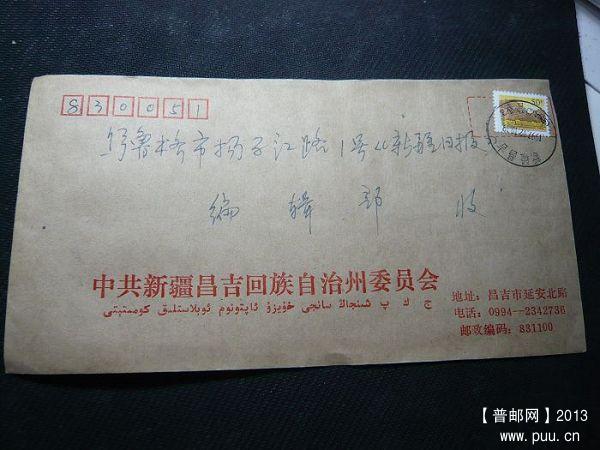 830051
50分
乌鲁木齐市扬子江路1号《新疆日报》
编 辑 部 收
中共新疆昌吉回族自治州委员会
ج ك پ شىنجاڭ سانجى خۇيزۇ ئاپتونوم ئوبلاستلىق كومىتېتى
地址：昌吉市延安北路
电话：0994--2342736
邮政编码：831100
【普邮网】2013
www.puu.cn